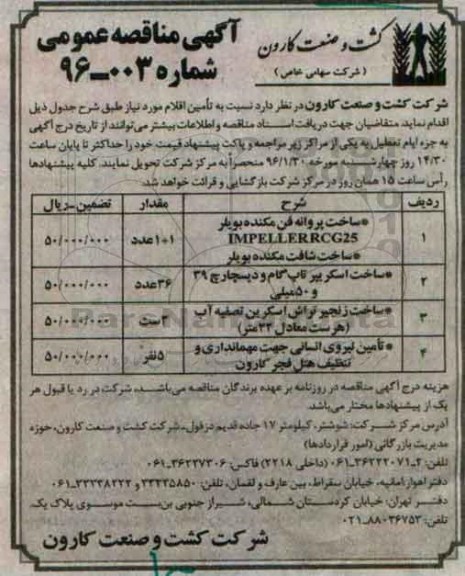 کشت و صنعت کارون
(شرکت سهامی خاص)
آگهی مناقصه عمومی
شماره ۰۰۳-۹۶
شرکت کشت و صنعت کارون در نظر دارد نسبت به تأمین اقلام مورد نیاز طبق شرح جدول ذیل
اقدام نماید. متقاضیان جهت دریافت اسناد مناقصه و اطلاعات بیشتر می‌توانند از تاریخ درج آگهی
به جزء ایام تعطیل به یکی از مراکز زیر مراجعه و پاکت پیشنهاد قیمت خود را حداکثر تا پایان ساعت
۱۴/۳۰ روز چهارشنبه مورخه ۹۶/۱/۳۰ منحصراً به مرکز شرکت تحویل نمایند. کلیه پیشنهادها
رأس ساعت ۱۵ همان روز در مرکز شرکت بازگشایی و قرائت خواهد شد.
ردیف شرح مقدار تضمین-ریال
۱ *ساخت پروانه فن مکنده بویلر IMPELLERRCG25 *ساخت شافت مکنده بویلر ۱+۱ عدد ۵۰/۰۰۰/۰۰۰
۲ *ساخت اسکریپر تاپ گام و دیسچارچ ۳۹ و ۵۰ میلی ۳۶ عدد ۵۰/۰۰۰/۰۰۰
۳ *ساخت زنجیر تراش اسکرین تصفیه آب (هر ست معادل ۲۲ متر) ۳ ست ۵۰/۰۰۰/۰۰۰
۴ *تأمین نیروی انسانی جهت مهمانداری و تنظیف هتل فجر کارون ۵ نفر ۵۰/۰۰۰/۰۰۰
هزینه درج آگهی مناقصه در روزنامه بر عهده برندگان مناقصه می‌باشد، شرکت در رد یا قبول هر
یک از پیشنهادها مختار می‌باشد.
آدرس مرکز شرکت: شوشتر، کیلومتر ۱۷ جاده قدیم دزفول، شرکت کشت و صنعت کارون، حوزه
مدیریت بازرگانی (امور قراردادها)
تلفن: ۴-۳۶۲۲۲۰۷۱-۰۶۱ (داخلی ۲۲۱۸) فاکس: ۳۶۲۲۷۳۰۶-۰۶۱
دفتر اهواز: امانیه، خیابان سقراط، بین عارف و لقمان، تلفن: ۳۳۳۳۵۸۵۰ و ۳۳۳۳۸۲۲۲-۰۶۱
دفتر تهران، خیابان کردستان شمالی، شیراز جنوبی بن‌بست موسوی پلاک یک.
تلفن: ۸۸۰۳۶۷۵۳-۰۲۱
شرکت کشت و صنعت کارون